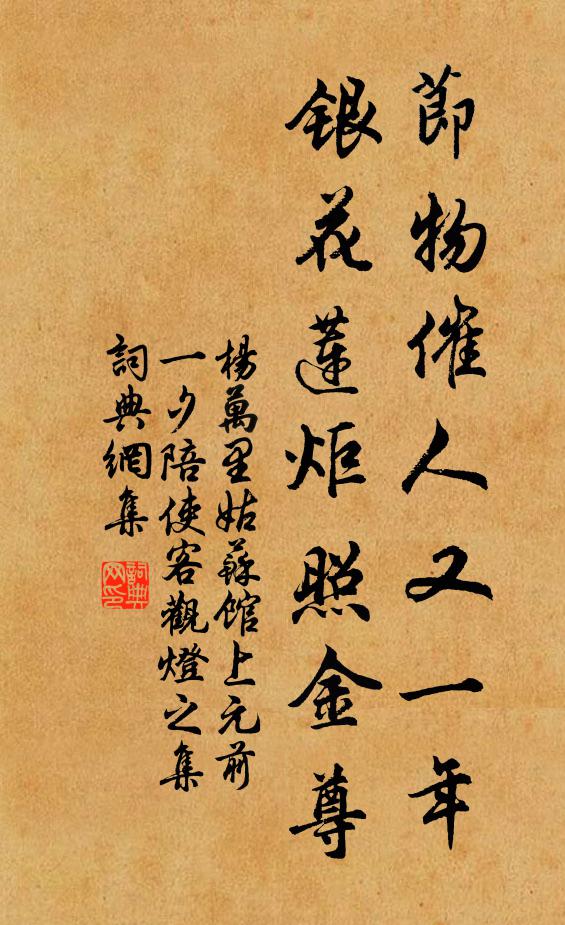 節物催人又一年
銀花蓮炬照金尊
楊萬里姑蘇館上元前
一夕陪使客觀燈之集
詞典網集
詞典網印